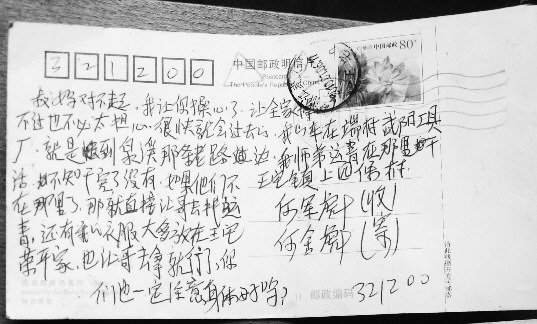 321200
中国邮政明信片
Postcard
The People's Republic of China
中国邮政 80分
我妈对不起，我让你操心了，让全家
不过也不必太担心，很快就会过去的，我的车在瑞村武阳工具
厂，就是 到泉溪那条老路边，我师弟运青在那里干
活，也不知干完了没有，如果他们不
在那里了，那就直接让哥去找运
青，还有我的衣服大多放在王宅
荣开家，也让哥去拿就行了，你
们也一定注意身体好哈，
王宅镇上四保村
何军尉(收)
何金尉(寄)
邮政编码 321200